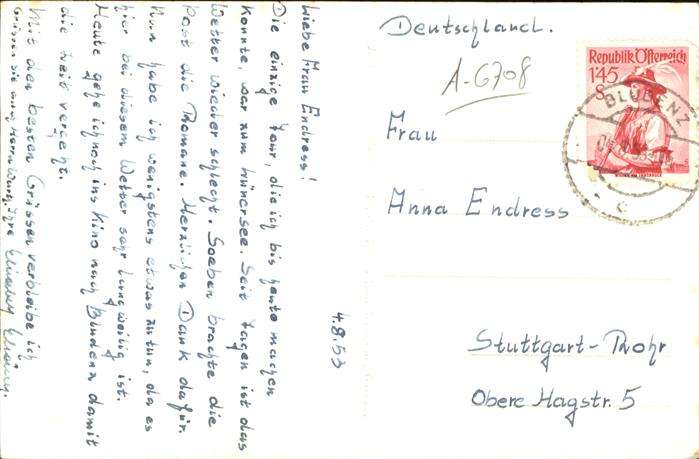 Liebe Frau Endress!
Die einzige Tour, die ich bis heute machen
konnte, war zum Lünersee. Seit Tagen ist das
Wetter wieder schlecht. Soeben brachte die
Post die Romane. Herzlichen Dank dafür.
Nun habe ich wenigstens etwas zu tun, da es
hier bei diesem Wetter sehr langweilig ist.
Heute gehe ich noch ins Kino nach Bludenz damit
die Zeit vergeht.
Mit den besten Grüssen verbleibe ich
Grüssen Sie Herrn Ihre
4.8.53
Deutschland.
A-6708
Frau
Anna Endress
Stuttgart-Rohr
Obere Hagstr. 5
Republik Österreich
1'45
S
BLUDENZ
c